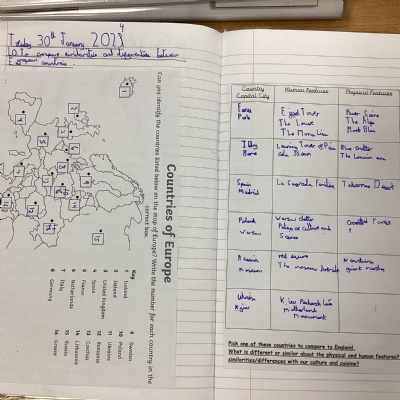 Tuesday 30th January 2024
L.O. To compare similarities and differences between
European countries
Countries of Europe
Can you identify the countries listed below on the map of Europe? Write the number for each country in the
correct box.
Key
1 Iceland
2 Ireland
3 United Kingdom
4 Spain
5 France
6 Netherlands
7 Italy
8 Germany
9 Sweden
10 Poland
11 Ukraine
12 Romania
13 Czechia
14 Lithuania
15 Russia
16 Greece
Country
Capital City
Human Features
Physical Features
Paris
The Mona Lisa
River Seine
The Alps
Mont Blanc
Italy
Rome
Leaning Tower of Pisa
Blue Grotto
Spain
Madrid
La Sagrada Familia
Tabernas Desert
Poland
Warsaw
Palace of Culture and
Science
Russia
Moscow
red square
Mountains
Motherland
Monument
Pick one of these countries to compare to England.
What is different or similar about the physical and human features?
similarities/differences with our culture and cuisine?